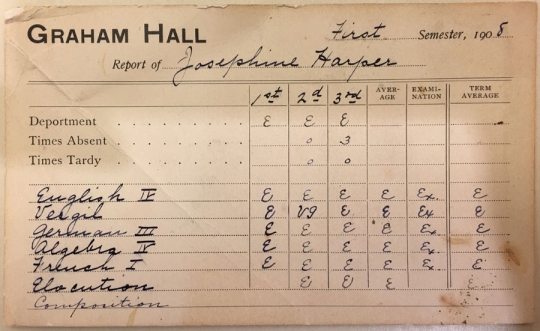 GRAHAM HALL First Semester, 1908
Report of Josephine Harper
1st 2d 3rd AVERAGE EXAMINATION TERM AVERAGE
Deportment E E E
Times Absent 0 3
Times Tardy 0 0
English IV E E E E Ex. E
Vergil E VG E E Ex E
German III E E E E Ex. E
Algebra IV E E E E Ex. E
French I E E E E Ex. E
Elocution E E E E
Composition